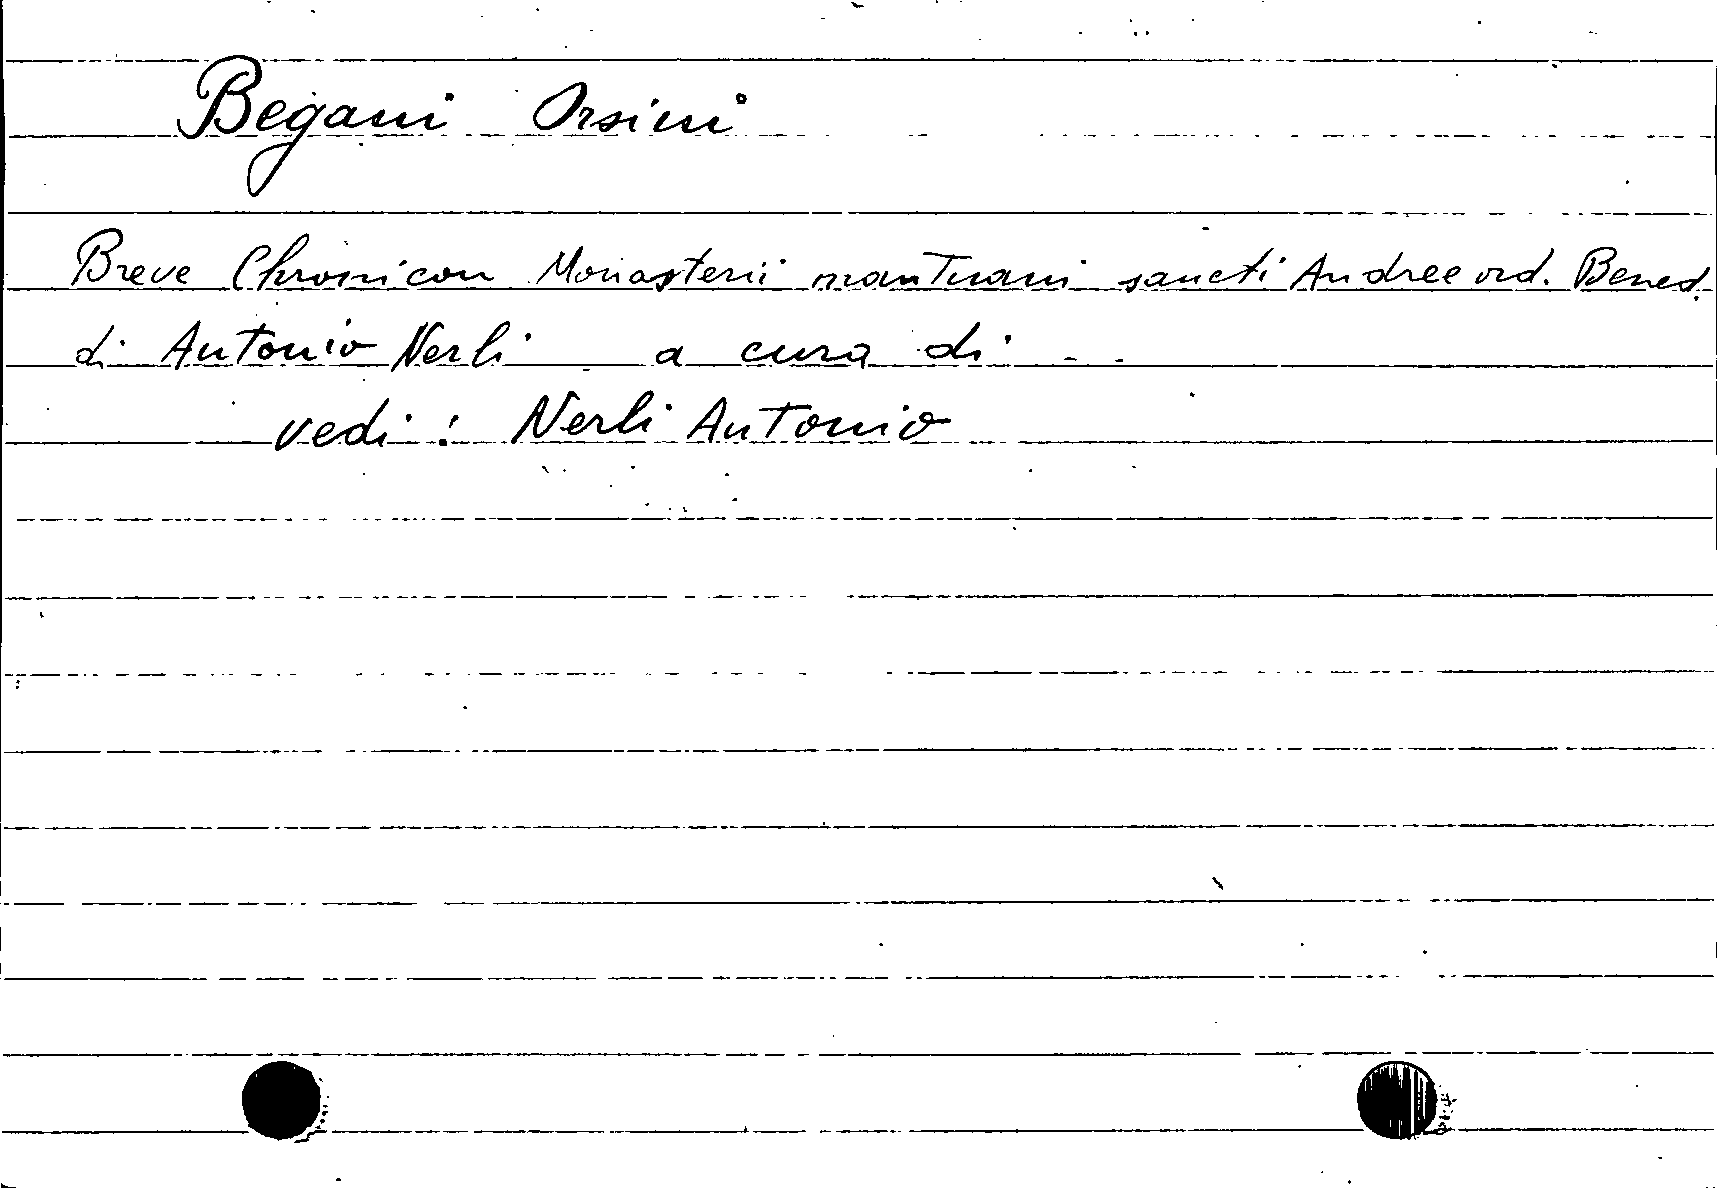 Begani Orsini
Breve Chronicon Monasterii mantuani sancti Andree ord. Bened.
di Antonio Nerli a cura di . .
vedi : Nerli Antonio